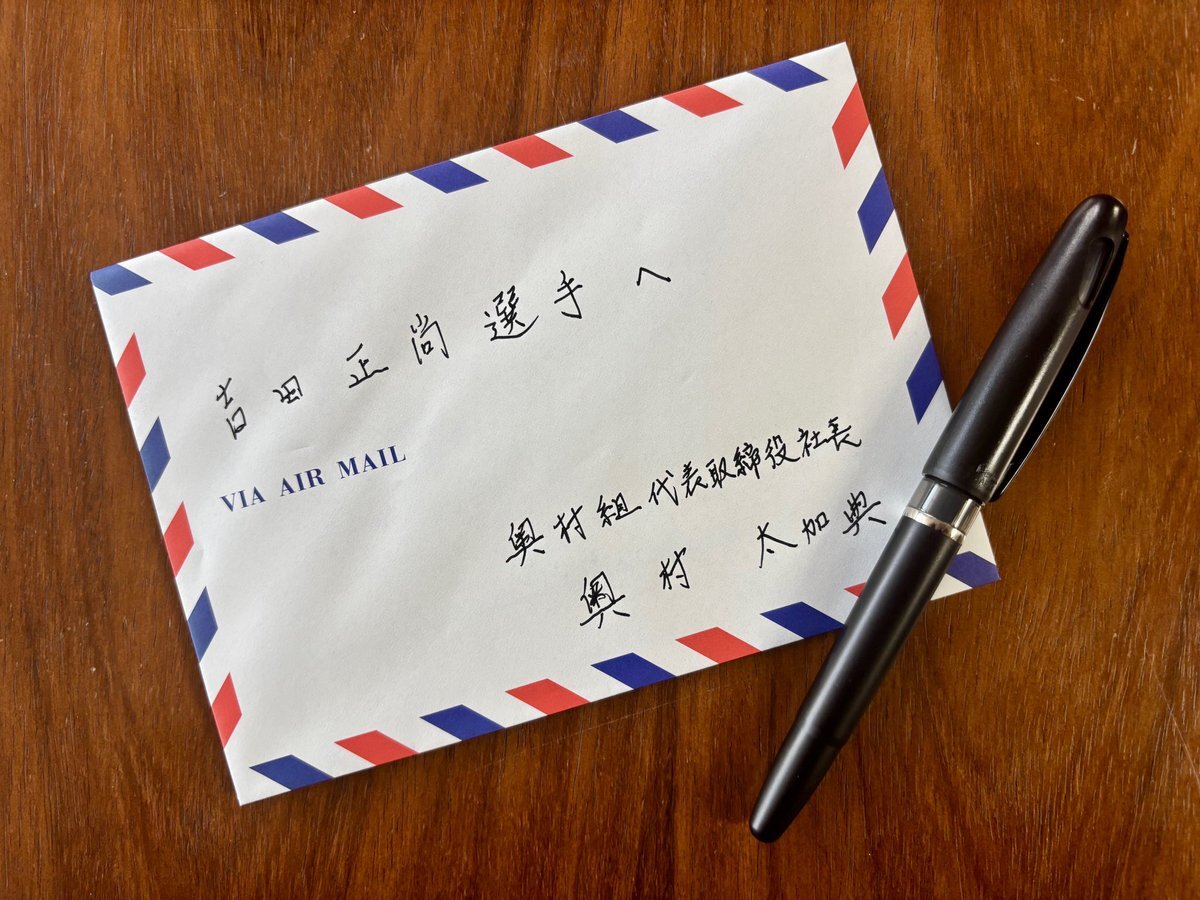 吉田正尚選手へ
VIA AIR MAIL
奥村組代表取締役社長
奥村 太加典